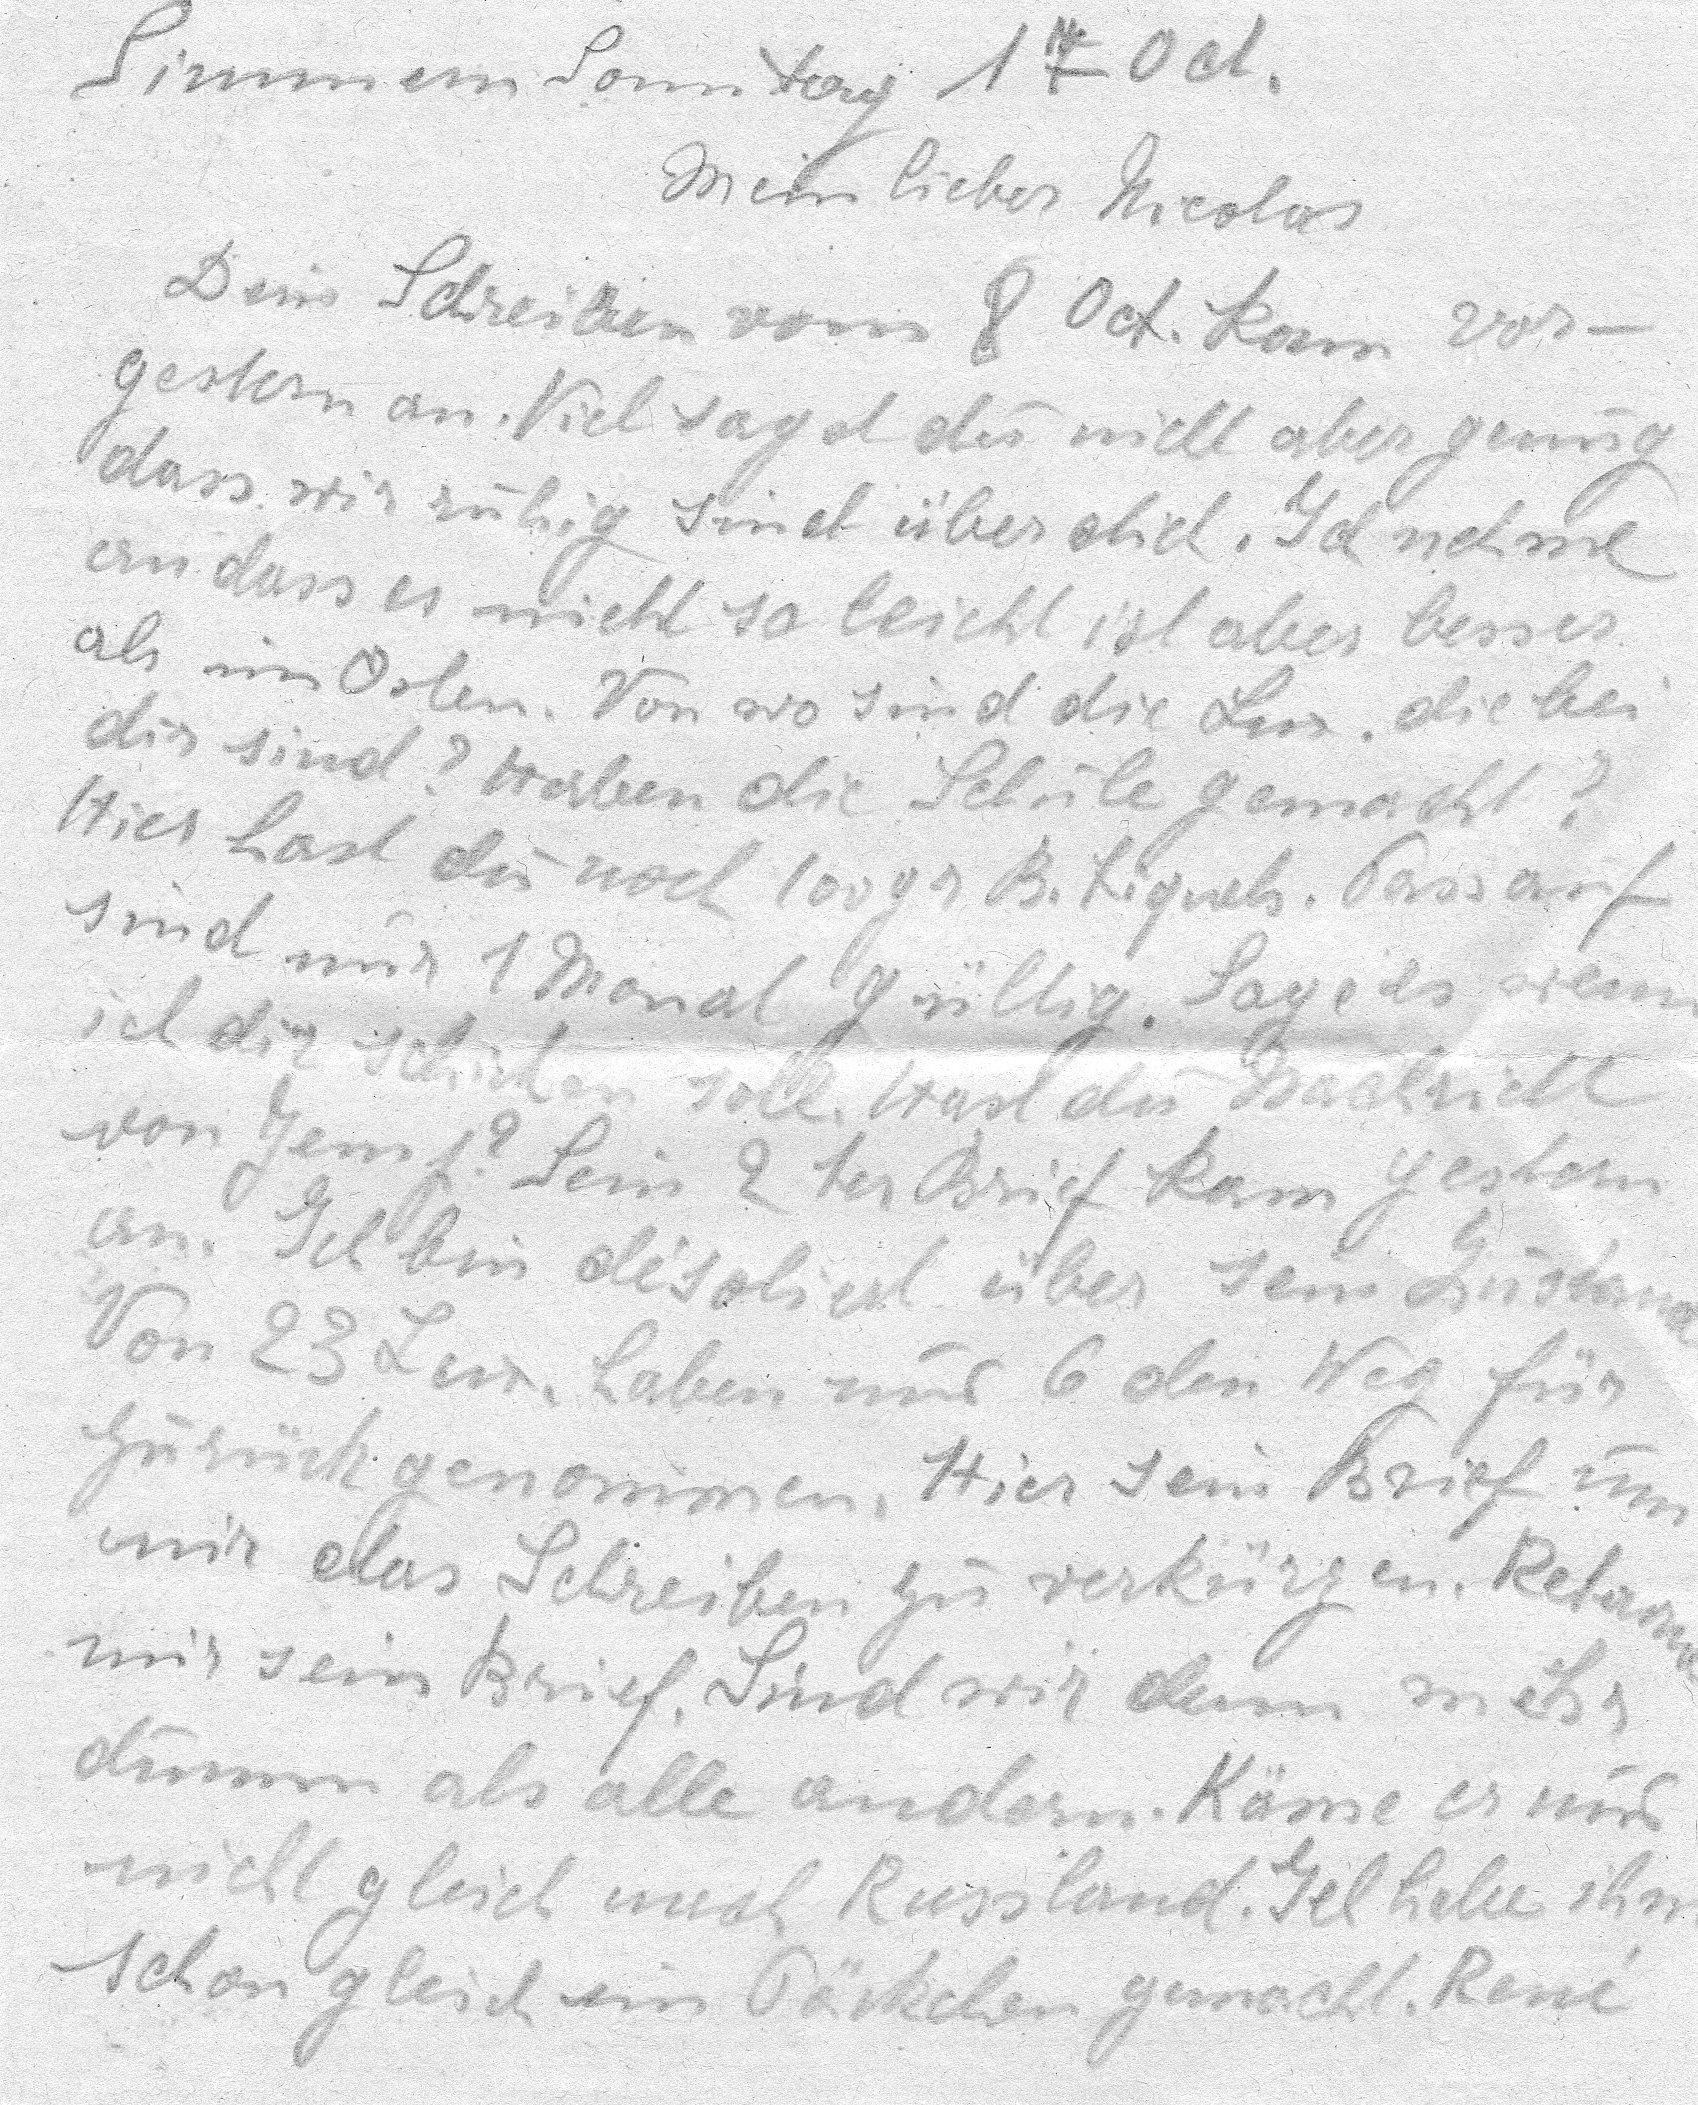 Simmern Sonntag 17 Oct.
Mein lieber Nicolas
Dein Schreiben vom 8 Oct. kam vor-
gestern an. Viel sagst du nicht aber genug
dass wir ruhig sind über dich. Ich nehme
an dass es nicht so leicht ist aber besser
als im Osten. Von wo sind die Lux. die bei
dir sind? Haben die Schule gemacht?
Hier hast du noch 100 gr B. Tiquets. Pass auf
sind nur 1 Monat gültig. Sage es wenn
ich dir schicken soll. Hast du Nachricht
von Jemp? Sein 2 ter Brief kam gestern
an. Ich bin désoliert über sein Zustand
Von 23 Lux. haben nur 6 den Weg für
zurück genommen. Hier sein Brief um
mir das Schreiben zu verkürzen. Retourne
mir sein Brief. Sind wir denn mehr
dumm als alle andern. Käme er nur
nicht gleich nach Russland. Ich habe ihm
schon gleich ein Päckchen gemacht. René